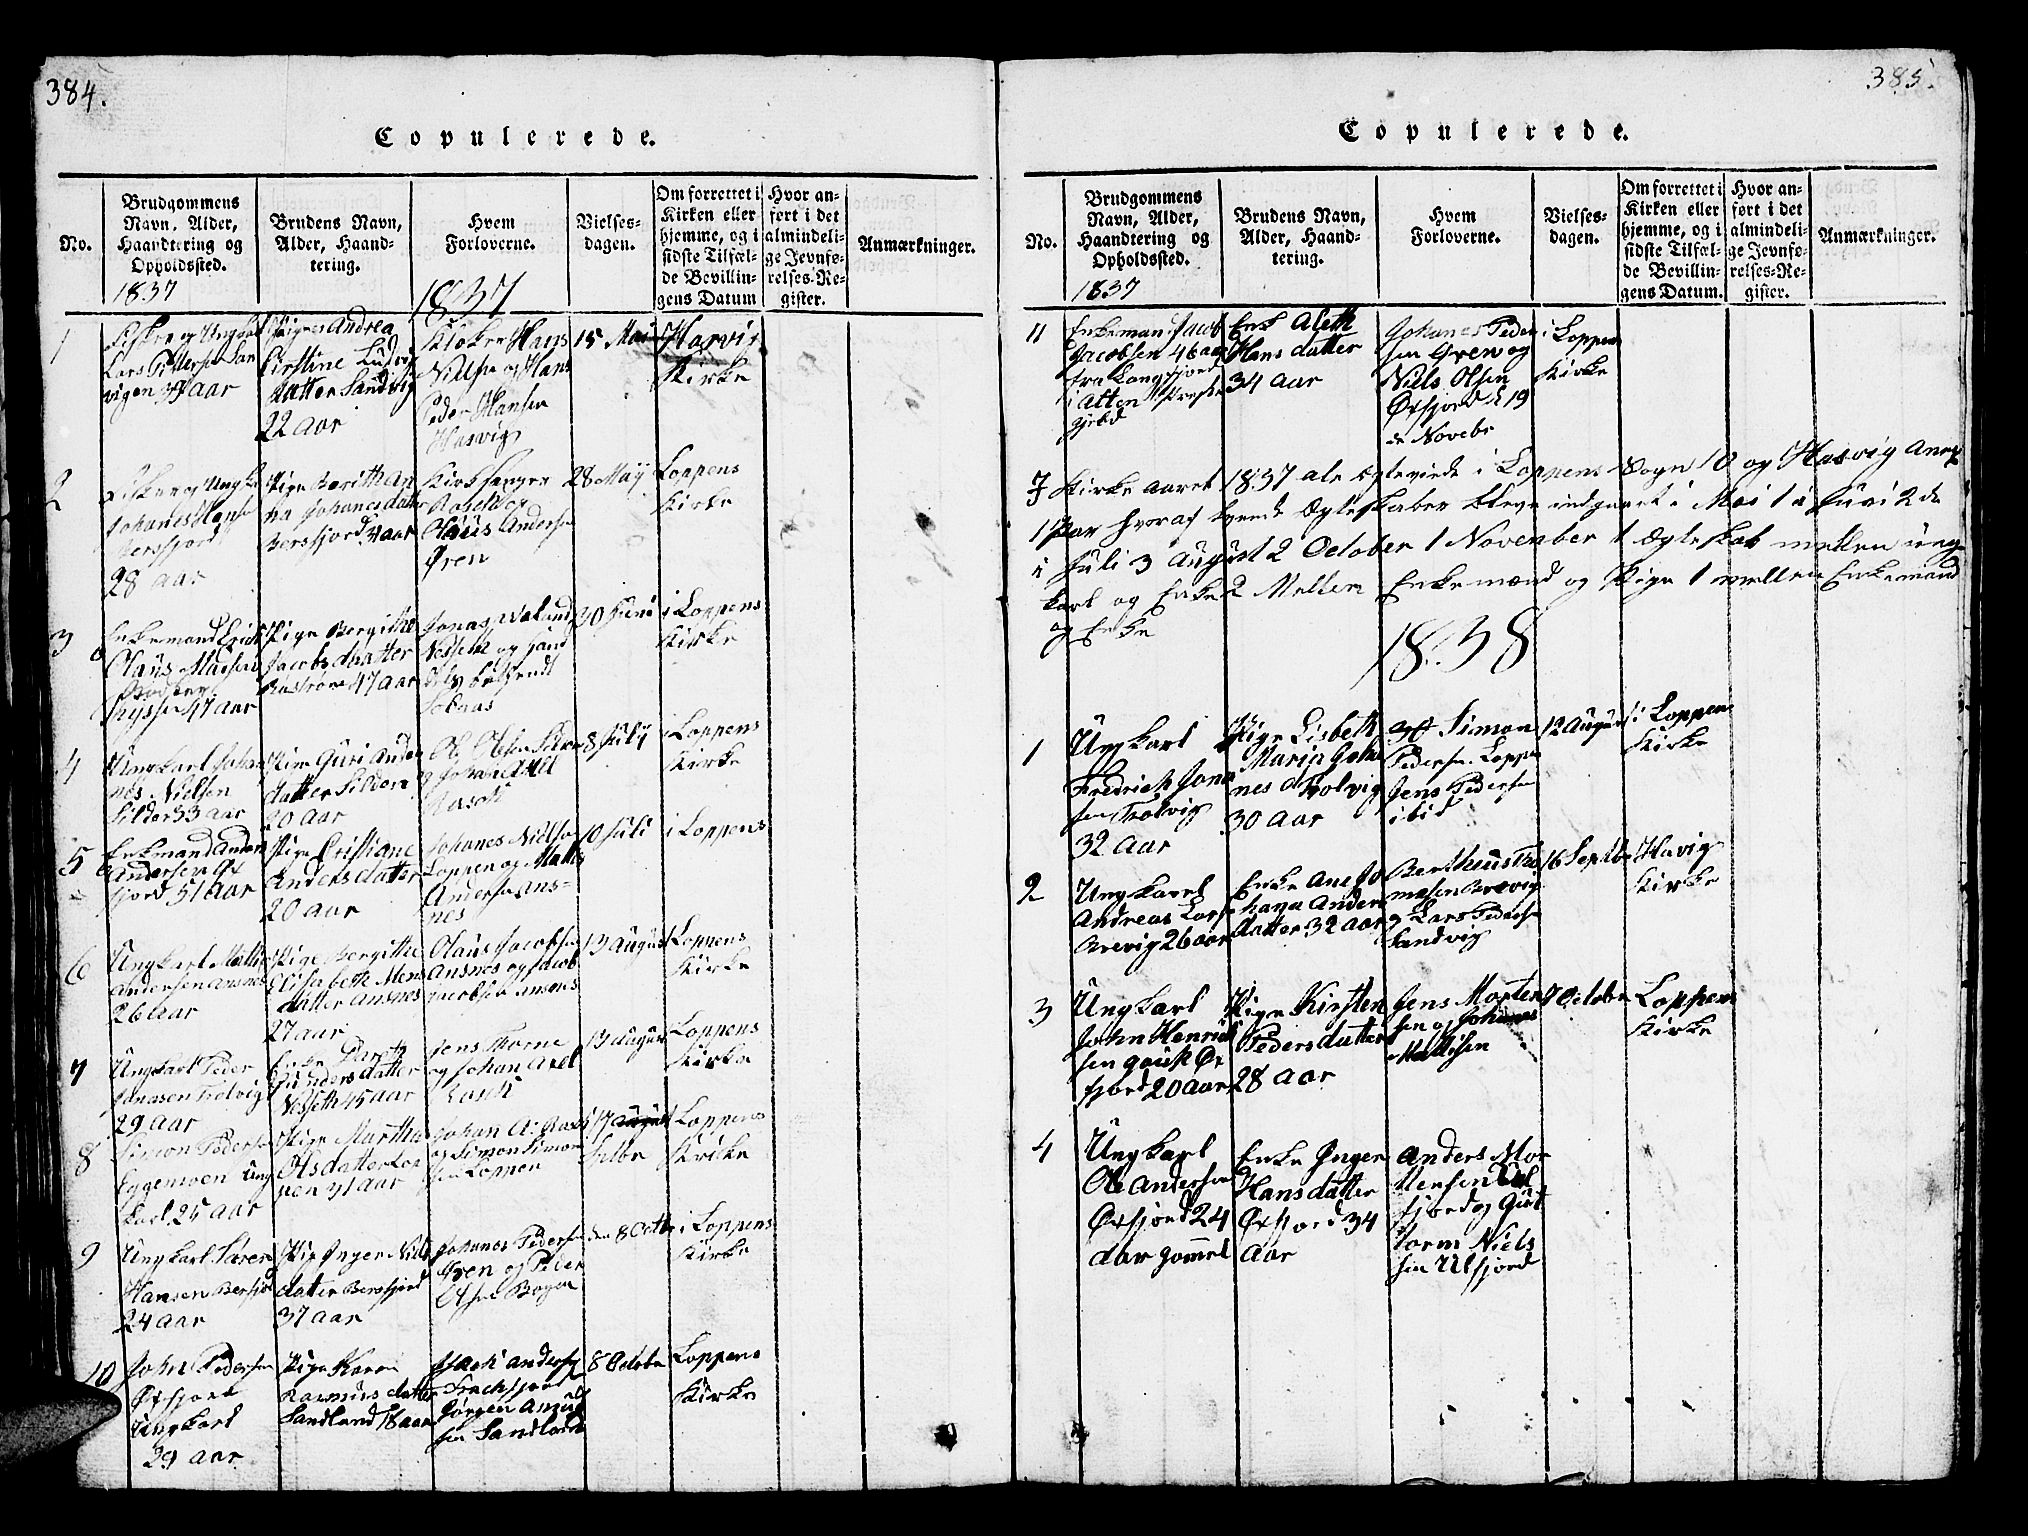 384.
Copulerede.
No.
Brudgommens
Navn, Alder,
Haandtering og
Opholdssted.
Brudens Navn,
Alder, Haand-
tering.
Hvem
Forloverne.
Vielses-
dagen.
Om forrettet i
Kirken eller
hjemme, og i
sidste Tilfæl-
de Bevillin-
gens Datum
Hvor an-
ført i det
almindeli-
ge Jevnfø-
relses-Re-
gister.
Anmærkninger.
1837
1837
1
Fisker og Ungkarl
Lars Pedersen San
vigen 39 aar
Pigen Andrea
Cirstine Ludvig
datter Sandvig
22 aar
Klokker Hans
Nielsen og Hans
Peder Hansen
Hasvig
15 Mai
Hasvig
Kirke
2
Fisker og Ungk
Johanes Hansen
Bersfjord
28 aar
Pige Berith An
na Johanesdatter
Bersfjord aar
Kirkesanger
og
Olaus Andersen
Øren
28 May
Loppens
Kirke
3
Enkemand
Olaus
47 aar
Pige Bergithe
Jacobsdatter
47 aar
Jonas
og
30 Juni
i Loppens
Kirke
4
Ungkarl Johan
nes Nielsen
Silden 33 aar
Pige Guri Anders
datter Silden
20 aar
Ole Olsen
og Johan Axel
8 July
i Loppens
Kirke
5
Enkemand Anders
Andersen Øx
fjord 51 aar
Pige Cristiane
Andersdatter
20 aar
Johanes Nielsen
Loppen og Mathis
Andersen Ans-
nes
10 Juli
i Loppens
6
Ungkarl Mathis
Andersen Ansnes
26 aar
Pige Bergithe
Elisabeth Mons
datter Ansnes
27 aar
Olaus Jacobsen
Ansnes og Jacob
Jacobsen Ansnes
13 August
Loppens
Kirke
7
Ungkarl Peder
Jonasen Trolvig
29 aar
Enke
datter
45 aar
Jens
og Johan Axel
13 August
Loppens
Kirke
8
Simon Pedersen
Eggemoen Ung
karl 25 aar
Pige Martha
Olsdatter Lop
pen 31 aar
Johan A.
og Simon Simon
sen Loppen
17 August
Septbr
Loppens
Kirke
9
Ungkarl Søren
Hansen Bersfjord
24 aar
Pige Inger Niels
datter Bersfjord
37 aar
Johanes Pedersen
Øren og Peder
Olsen Bogen
den 8 Octbr
i Loppens
Kirke
10
John Pedersen
Øxfjord
Ungkarl
29 aar
Pige Karen
Rasmusdatter
Sandland 18 aar
Isach Andersen
Jørgen Amund
sen Sandland
8 Octobr
Loppens
Kirke
385.
Copulerede.
No.
Brudgommens
Navn, Alder,
Haandtering og
Opholdssted.
Brudens Navn,
Alder, Haand-
tering.
Hvem
Forloverne.
Vielses-
dagen.
Om forrettet i
Kirken eller
hjemme, og i
sidste Tilfæl-
de Bevillin-
gens Datum.
Hvor an-
ført i det
almindeli-
ge Jevnfø-
relses-Re-
gister.
Anmærkninger.
1837
11
Enkeman Jacob
Jacobsen 46 aar
fra Langfjord
i Alten Præste
gjeld
Enke Aleth
Hansdatter
34 aar
Johanes Peder
sen Øren og
Niels Olsen
Øxfjord d 19
de Novebr
i Loppens
Kirke
I Kirke aaret 1837 ale Ægteviede i Loppens Sogn 10 og Hasvig Anex
1 Par hvoraf Ægteskaber bleve indgaaet i Mai 1 i Juni 2 de
i Juli 3 August 2 October 1 November 1 Ægteskab mellem Ung
karl og Enke 2 Mellem Enkemænd og Pige 1 mellem Enkemand
og Enke
1838
1
Ungkarl
Fredrich Jona
sen Trolvig
32 aar
Pige Lisbeth
Maria Joha
nes d Trolvig
30 aar
Simon
Pedersen Loppen
Jens Pedersen
ibid
12 August
i Loppen
Kirke
2
Ungkarl
Andreas Lars
Brevig 26 aar
Enke Ane Jo
hana Anders
datter 32 aar
Bertheus Tho
masen Brevig
og Lars Pedersen
Sandvig
16 Septbr
Havig
Kirke
3
Ungkarl
John Henrich
sen Øx
fjord 20 aar
Pige Kirsten
Pedersdatter
28 aar
Jens Morten
sen og Johanes
Mathisen
7 October
Loppens
Kirke
4
Ungkarl
Ole Andersen
Øxfjord 24
aar gammel
Enke Inger
Hansdatter
Øxfjord 34
aar
Anders Mor
tensen Ul
fjord og Gut
torm Niels
sen Ulfjord